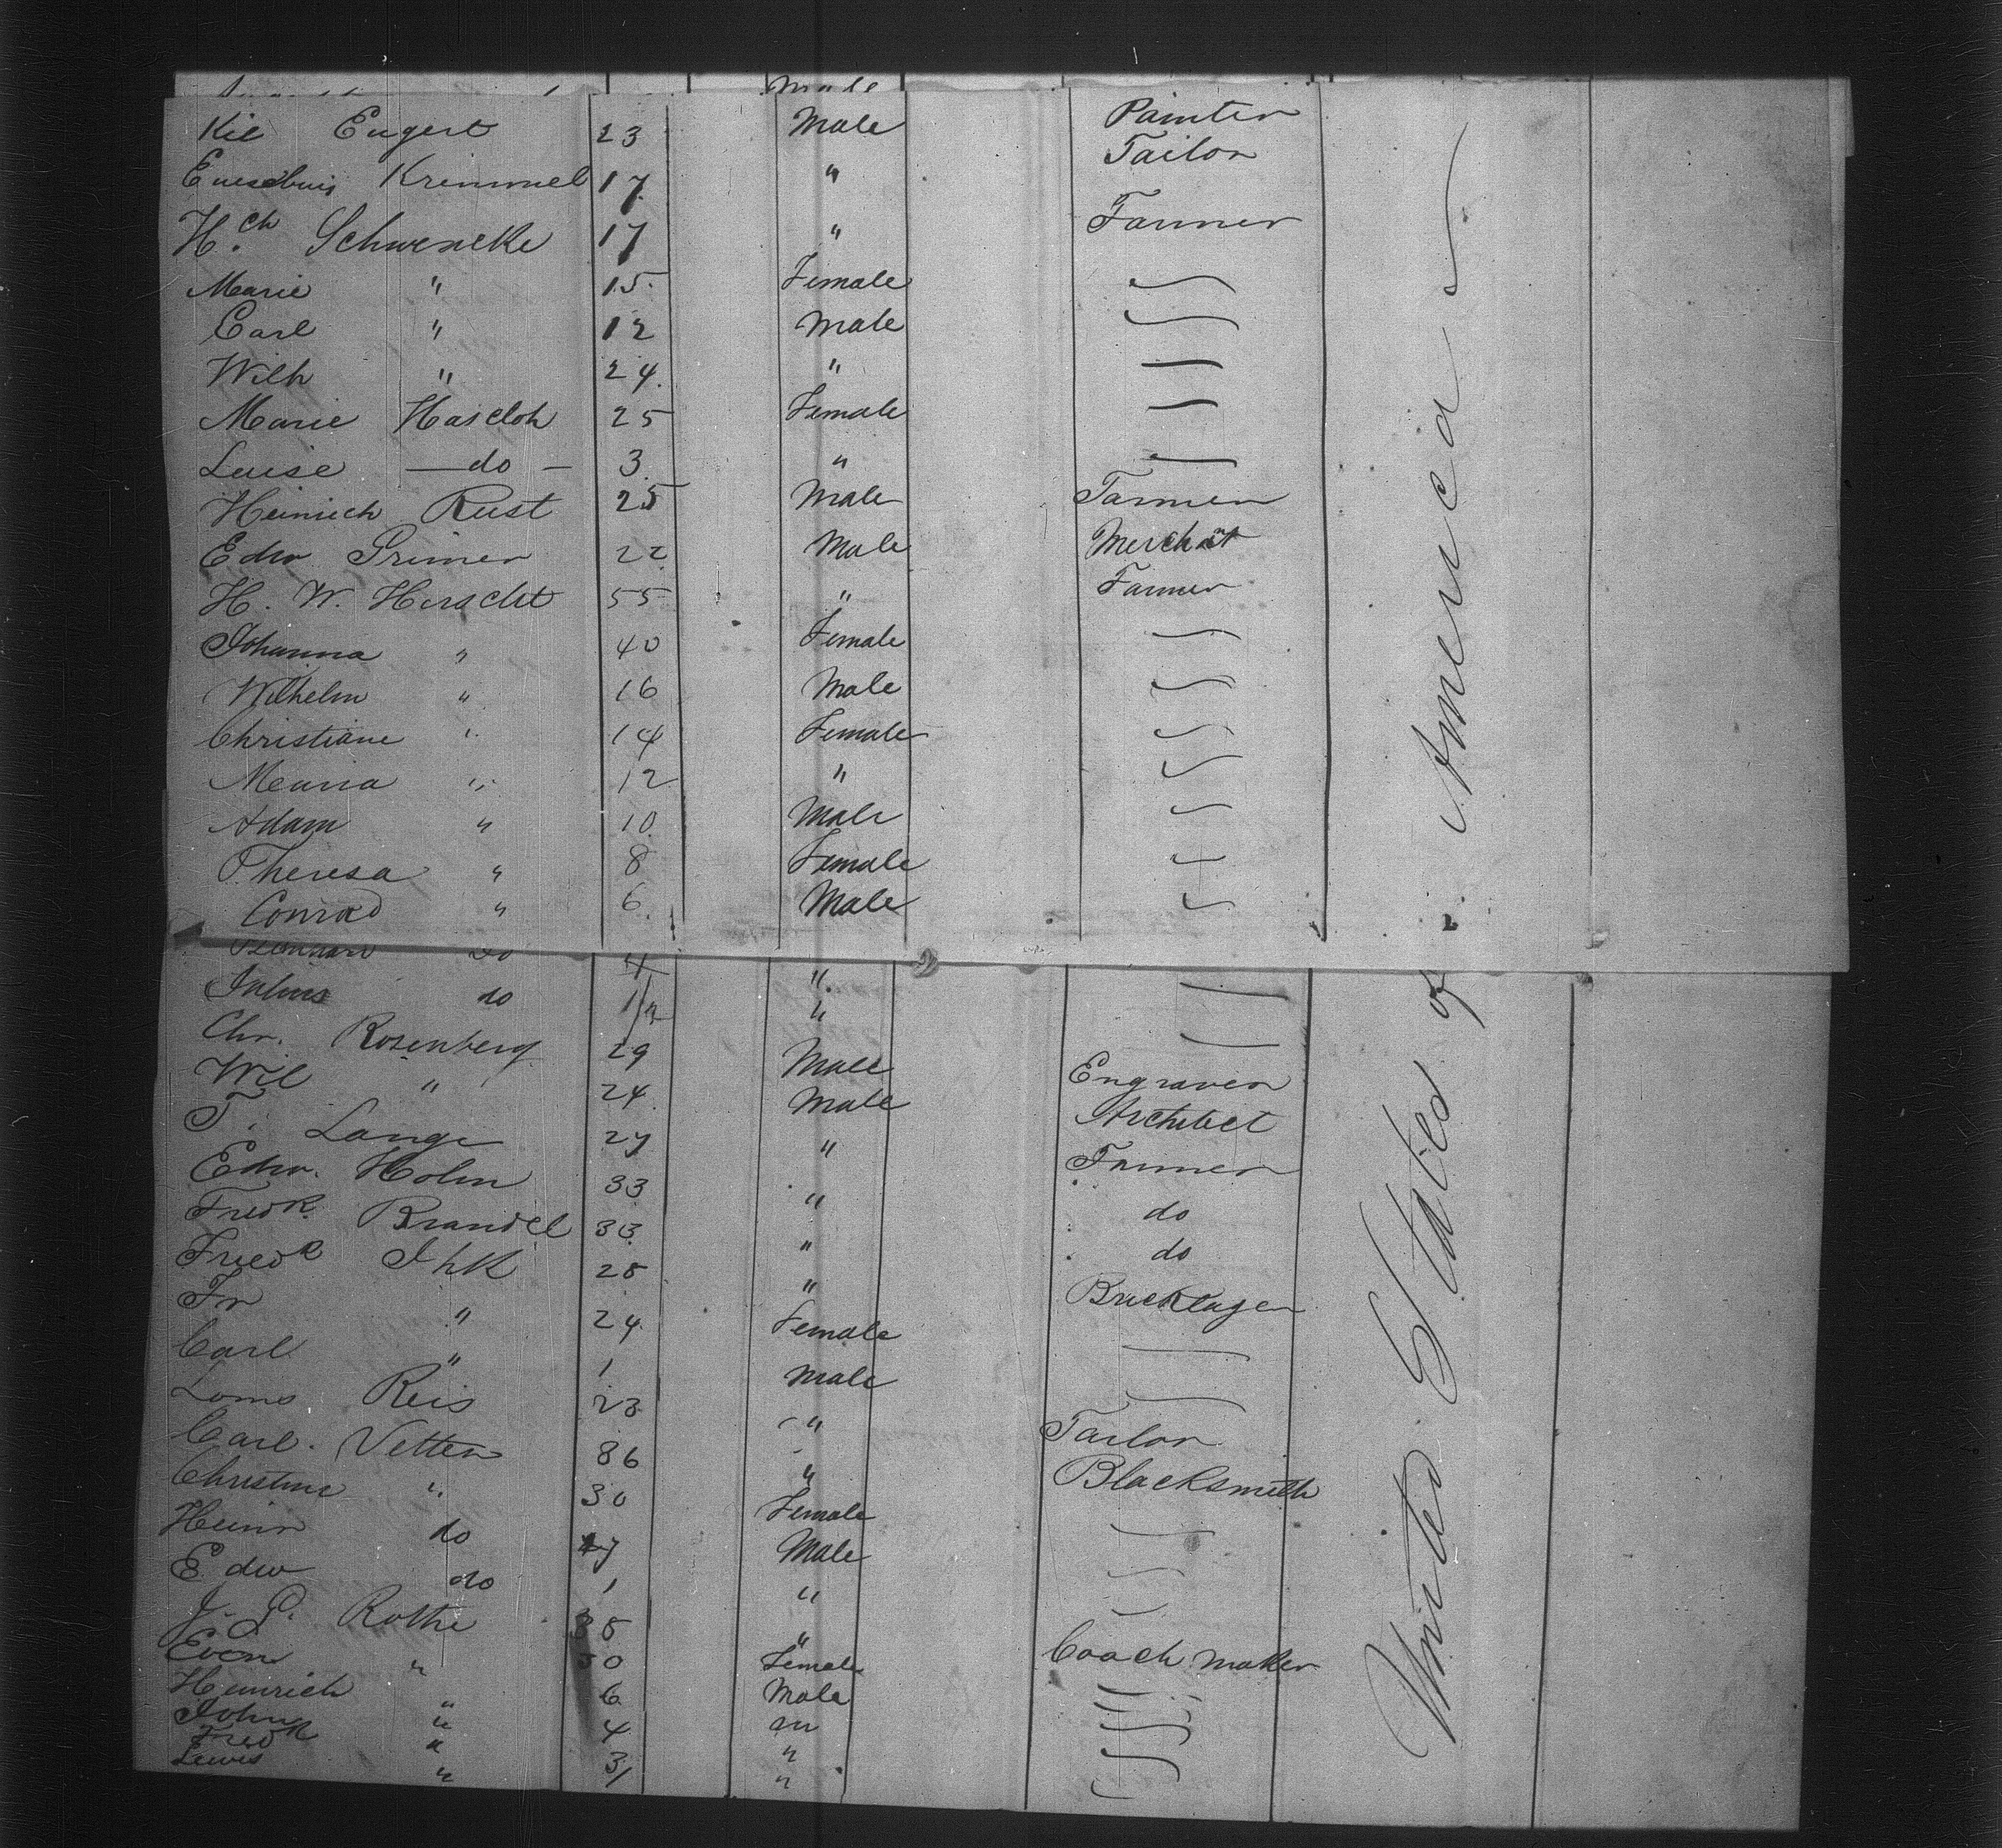 Male
Kil Eugert 23 Male Painter
Eusebuis Kremmel 17 " Tailor
H.ch Schwencke 17 " Farmer
Marie " 15 Female
Carl " 12 Male
Wilh " 24 "
Marie Haseloh 25 Female
Luise — do — 3 "
Heinrich Rust 25 Male Farmer
Edw Primer 22 Male Merchant
H. W. Herscht 55 " Farmer
Johanna " 40 Female
Wilhelm " 16 Male
Christiane " 14 Female
" 12 "
Adam " 10 Male
Theresa " 8 Female
Conrad " 6 Male
do 4 "
Julius do "
Chr. Rosenberg 29 Male Engraver
Wil " 24 Male Architect
F. Lange 27 " Farmer
Edw. Holm 33 " do
Fredk Brandel 33 " do
Friedk Ihk 28 " Bricklayer
Fr " 24 Female
Carl " 1 Male
Reis 23 " Tailor
Carl. Vetter 36 " Blacksmith
Christine " 30 Female
Heinr do 7 Male
Edw do 1 "
J. G. Rothe 38 " Coach maker
Even " 30 Female
Heinrich " 6 Male
John " 4 "
Fredk " 3 "
Lewis " 1 "
United States of America